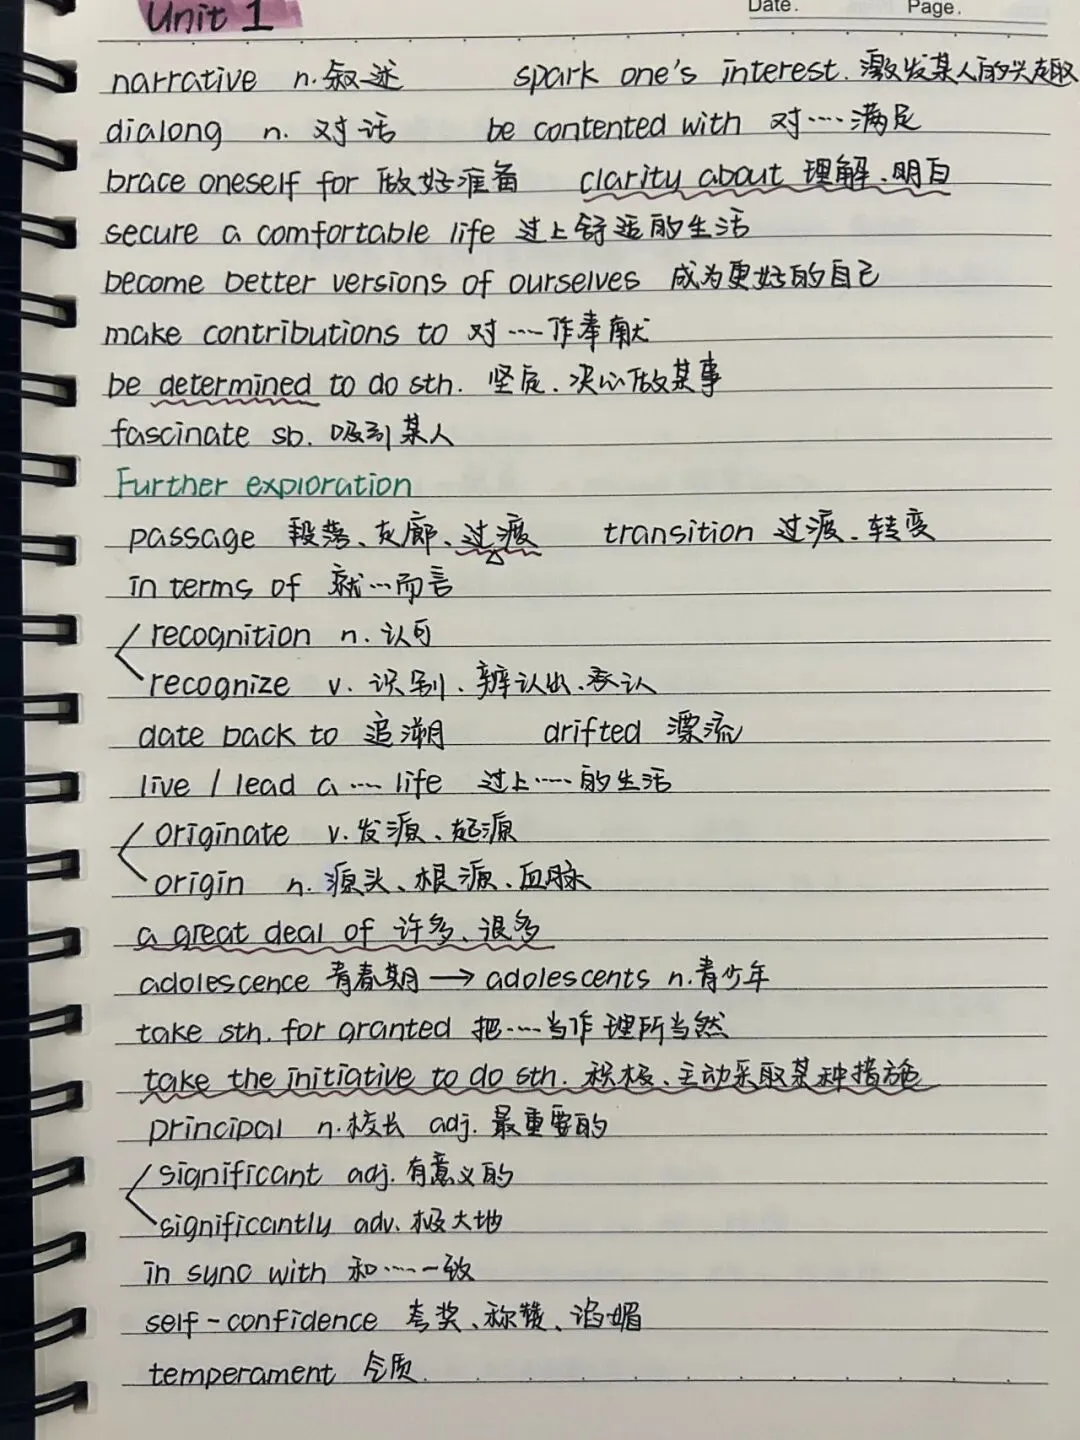 Unit 1
Date. Page.
narrative n.叙述 spark one's interest. 激发某人的兴趣
dialong n. 对话 be contented with 对……满足
brace oneself for 做好准备 clarity about 理解、明白
secure a comfortable life 过上舒适的生活
become better versions of ourselves 成为更好的自己
make contributions to 对……作奉献
be determined to do sth. 坚定、决心做某事
fascinate sb. 吸引某人
Further exploration
passage 段落、走廊、过渡 transition 过渡、转变
in terms of 就…而言
recognition n. 认可
recognize v. 识别、辨认出、承认
date back to 追溯 drifted 漂流
live / lead a …… life 过上……的生活
originate v. 发源、起源
origin n. 源头、根源、血脉
a great deal of 许多、很多
adolescence 青春期 → adolescents n.青少年
take sth. for granted 把……当作理所当然
take the initiative to do sth. 积极、主动采取某种措施
principal n.校长 adj. 最重要的
significant adj. 有意义的
significantly adv. 极大地
in sync with 和……一致
self-confidence 夸奖、称赞、谄媚
temperament 气质.